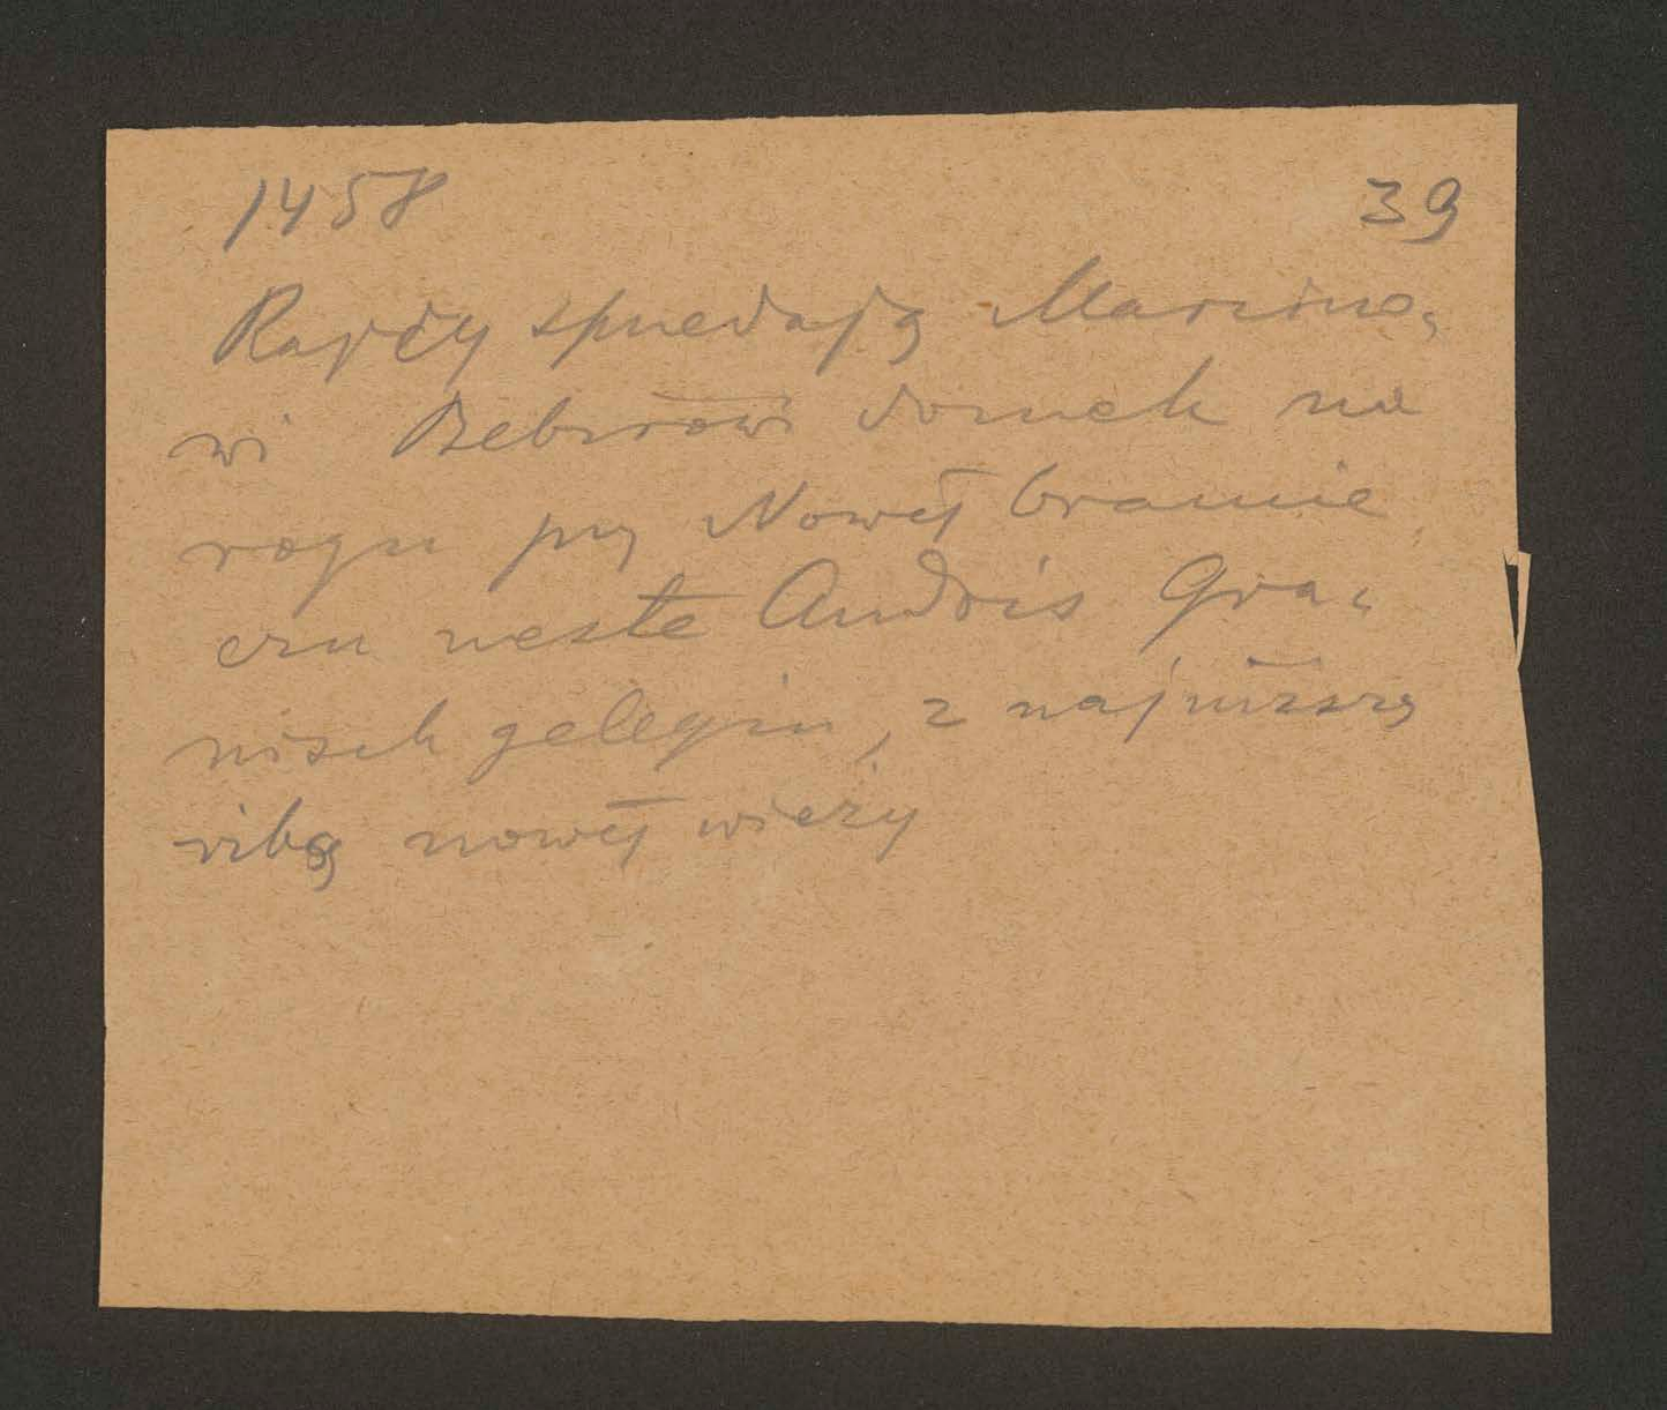 1458 39
Rajcy sprzedają Marcino-
wi Bebrowi domek na
rogu przy Nowej bramie
czu neste Andris Gra-
nisch gelegin, z najniższą
izbą nowej wieży